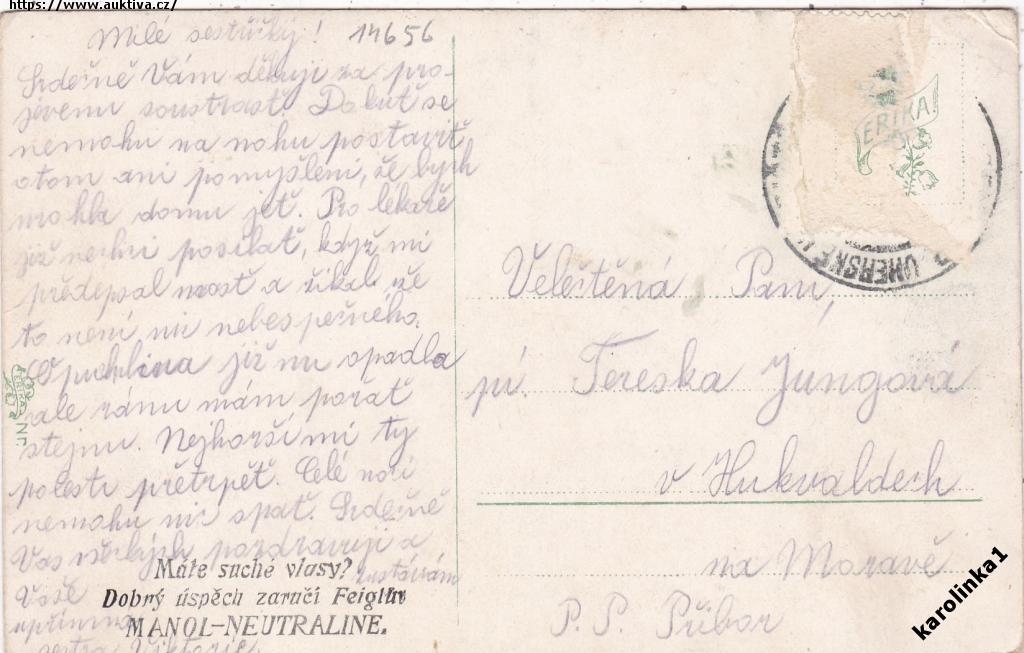 https://www.auktiva.cz/
Milé sestřičky! 14656
Srdečně Vám děkuji za pro-
jevenu soustrast. Dokut se
nemohu na nohu postavit
otom ani pomyšleni, že bych
mohla domu jet. Pro lékaře
již nechci posilat, když mi
předepsal mast a řikal že
to neni nic nebezpečného.
Opuchlina již mu opadla
ale ránu mám pořat
stejnu. Nejhorší mi ty
bolesti přetrpět. Celé noci
nemohu nic spat. Srdečně
Vas všechnych pozdravuji a
zustávám
Vaše
upřimná
sestra Viktorie
Máte suché vlasy?
Dobrý úspěch zaručí Feiglův
MANOL-NEUTRALINE.
ERIKA
Nr.
ERIKA
UHERSKÉ
Velectěná Pani,
pí. Tereska Jungová
v Hukvaldech
na Moravě
P. P. Příbor
karolinka1